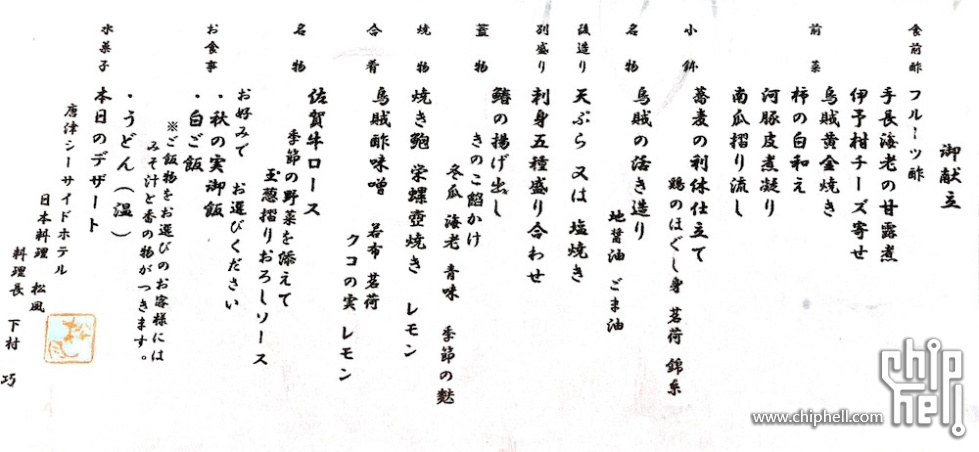 御献立
食前酢 フルーツ酢
前菜 手長海老の甘露煮
伊予柑チーズ寄せ
烏賊黄金焼き
柿の白和え
河豚皮煮凝り
南瓜摺り流し
小鉢 蕎麦の利休仕立て
鶏のほぐし身 茗荷 錦糸
名物 烏賊の活き造り
地醤油 ごま油
後造り 天ぷら 又は 塩焼き
別盛り 刺身五種盛り合わせ
蓋物 鰆の揚げ出し
きのこ餡かけ
冬瓜 海老 青味 季節の麩
焼物 焼き鮑 栄螺壺焼き レモン
合肴 烏賊酢味噌 若布 茗荷
クコの実 レモン
名物 佐賀牛ロース
季節の野菜を添えて
玉葱摺りおろしソース
お食事 お好みで お選びください
・秋の実御飯
・白ご飯
※ご飯物をお選びのお客様には
みそ汁と香の物がつきます。
・うどん(温)
水菓子 本日のデザート
唐津シーサイドホテル
日本料理 松風
料理長 下村 巧
松風
chip hell
www.chiphell.com